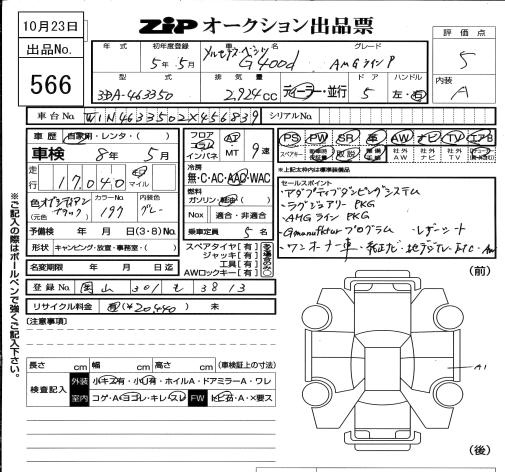 10月23日
ZIP オークション出品票
評価点
5
内装
A
出品No.
566
年式 初年度登録 車名 グレード
5年5月 メルセデスベンツ G400d AMGラインP
型式 排気量 ドア ハンドル
3DA-463350 2,924cc ディーラー・並行 5 左・右
車台No. W1N4633502X456839 シリアルNo.
車歴 自家用・レンタ・( )
車検 8年 5月
走行 17,040 km マイル
色 オブシディアンブラック (元色) カラーNo. 197 内装色 グレー
予備検 年 月 日(3・8)No.
形状 キャンピング・放置・事務室・( )
名変期限 年 月 日迄
登録No. 岡山 301 も 3813
リサイクル料金 有(¥20,440) 未
フロア コラム インパネ AT・MT 9速
冷房
無・C・AC・AAC・WAC
燃料
ガソリン・軽油・( )
Nox 適合・非適合
乗車定員 5名
スペアタイヤ[有]
ジャッキ[有]
工具[有]
AWロックキー[有]
PS PW SR 革 AW ナビ TV エアB
スペアキー 取説 社外AW 社外ナビ 社外TV
※上記太枠内は標準装備品
セールスポイント
・アダプティブダンピングシステム
・ラグジュアリーPKG
・AMGラインPKG
・Gmanufakturプログラム ・レザーシート
・ワンオーナー車・純正ナビ・地デジ
(注意事項)
長さ cm 幅 cm 高さ cm (車検証上の寸法)
検査記入 外装 小キズ有・小凹有・ホイルA・ドアミラーA・ワレ
室内 コゲ・A・ヨゴレ・キレ・スレ FW トビ石・A・×要ス
(前)
A1
(後)
※ご記入の際はボールペンで強くご記入下さい。